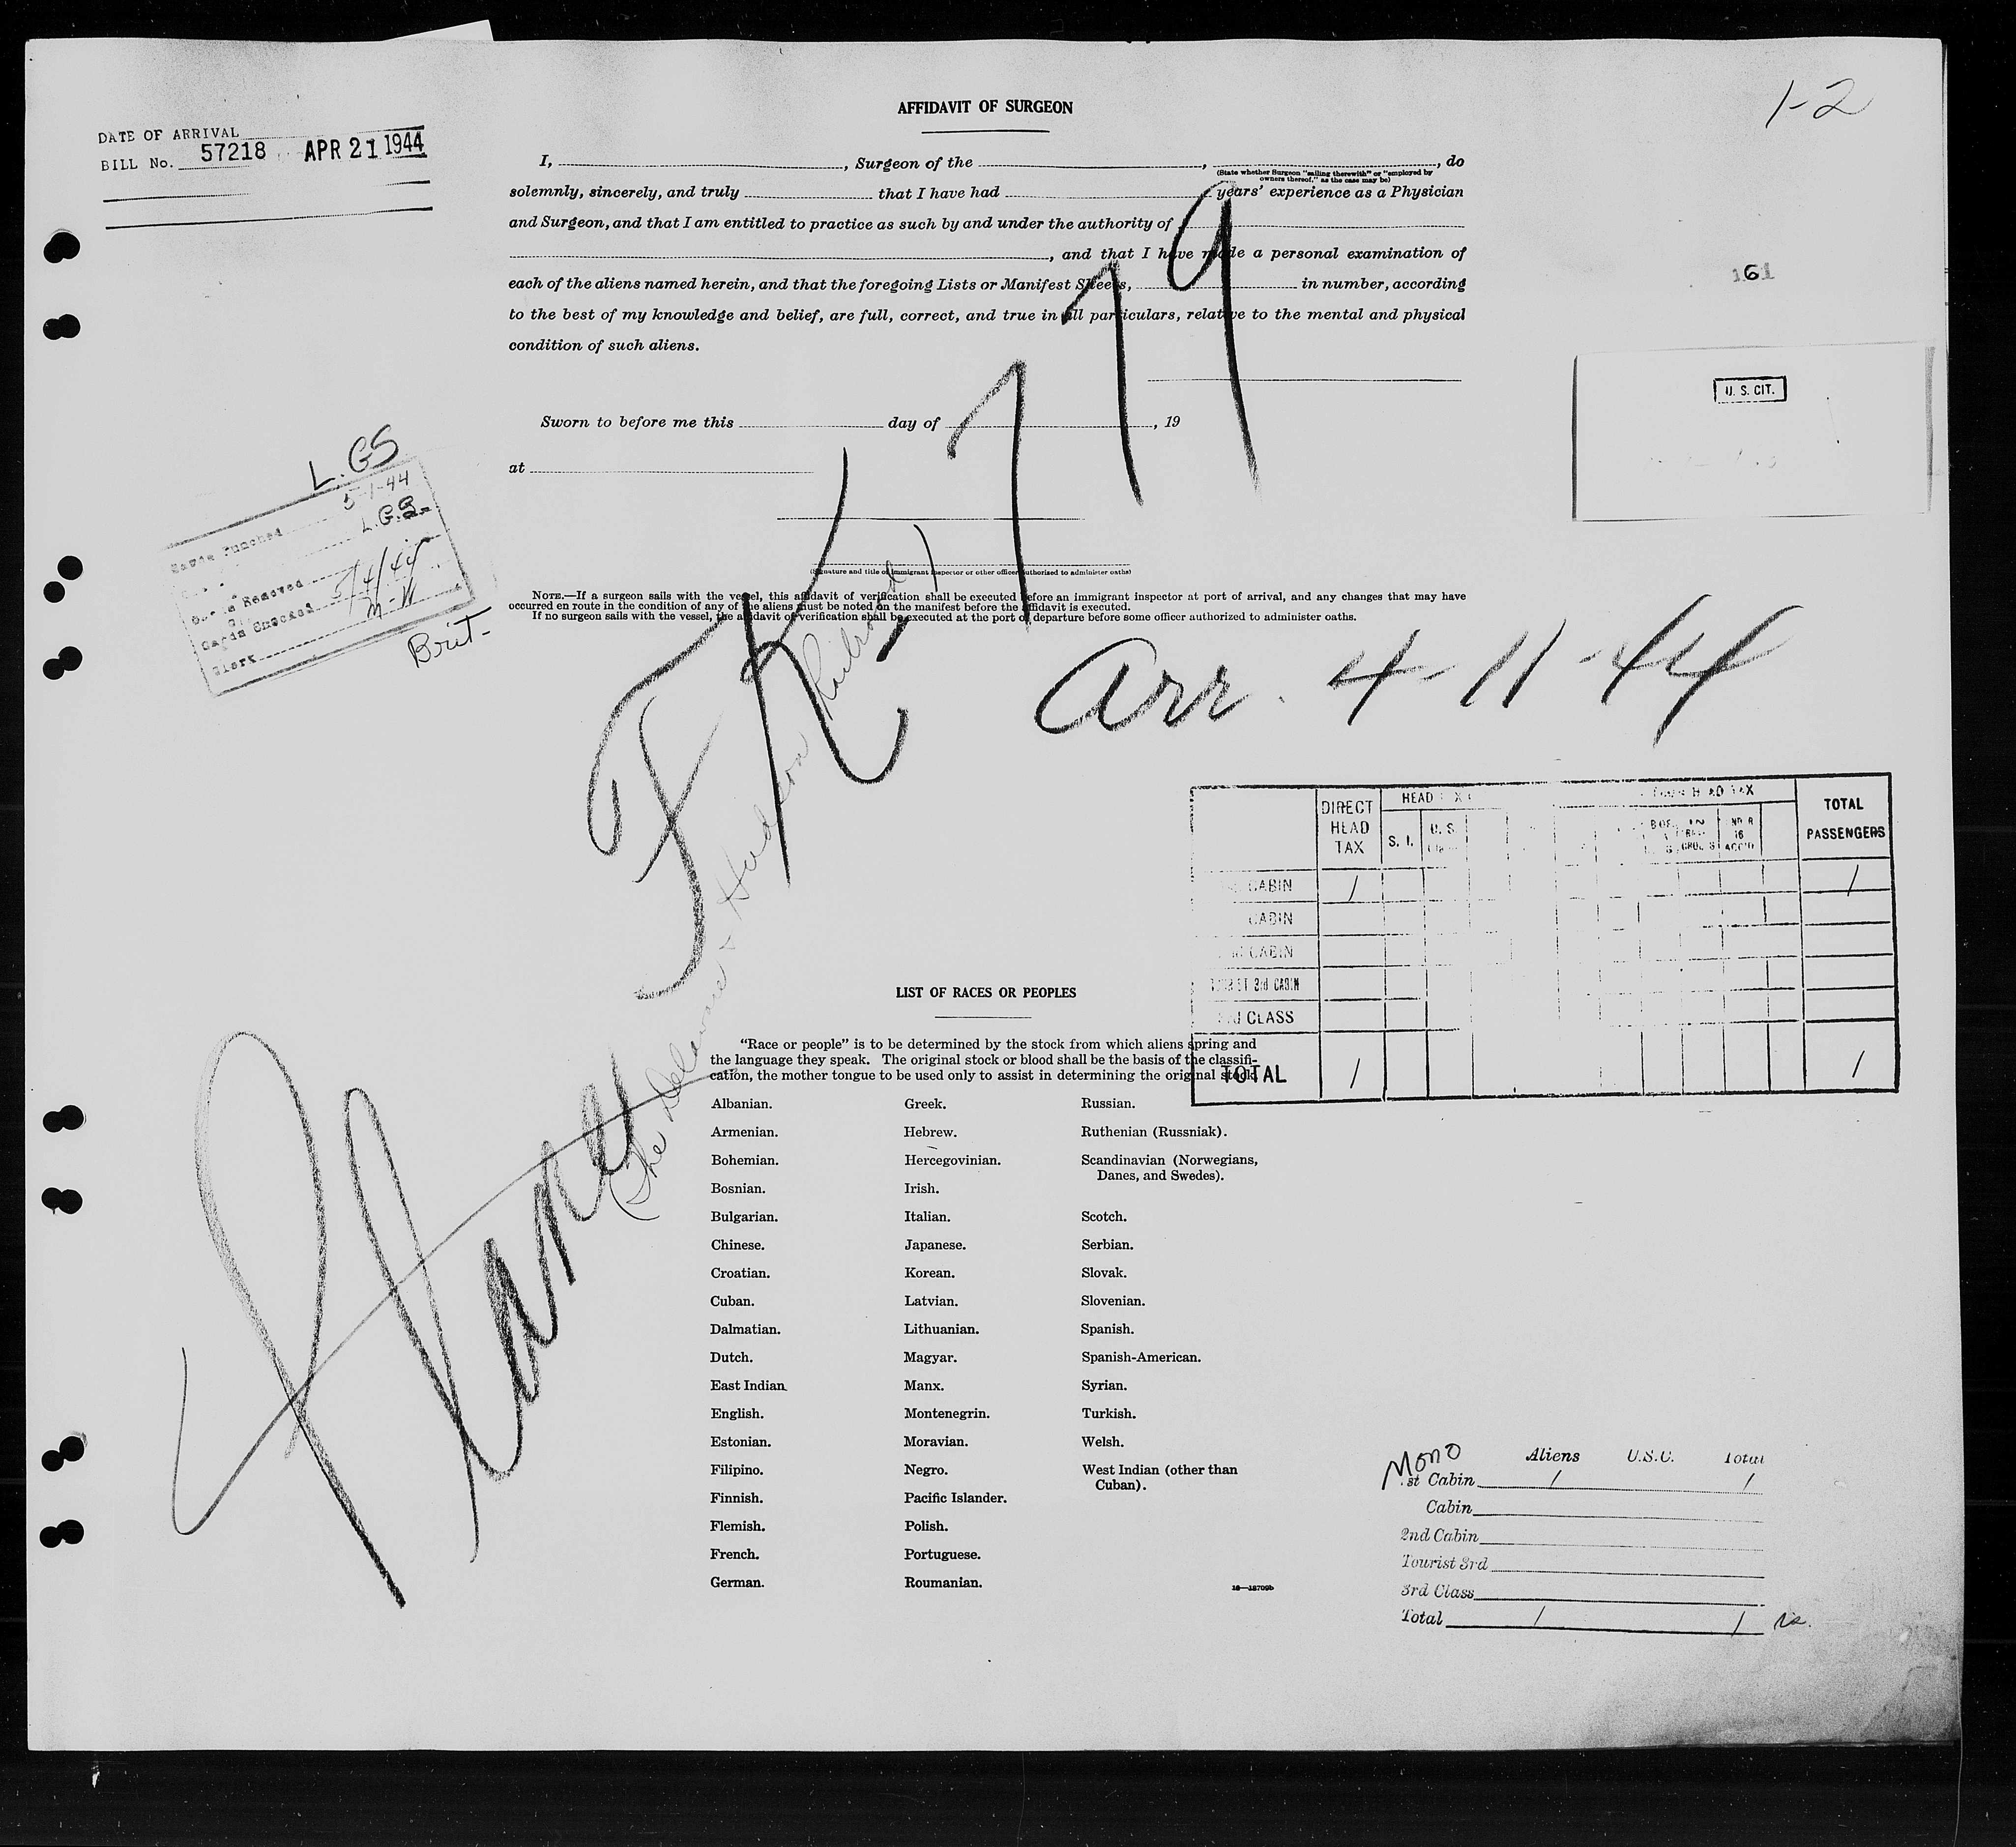 1-2
AFFIDAVIT OF SURGEON
DATE OF ARRIVAL
BILL No. 57218 APR 21 1944
I, , Surgeon of the , , do
(State whether Surgeon "sailing therewith" or "employed by
owners thereof," as the case may be)
solemnly, sincerely, and truly that I have had years' experience as a Physician
and Surgeon, and that I am entitled to practice as such by and under the authority of
, and that I have made a personal examination of
each of the aliens named herein, and that the foregoing Lists or Manifest Sheets, in number, according
to the best of my knowledge and belief, are full, correct, and true in all particulars, relative to the mental and physical
condition of such aliens.
161
U. S. CIT.
Sworn to before me this day of , 19
at
(Signature and title of immigrant inspector or other officer authorized to administer oaths)
NOTE.—If a surgeon sails with the vessel, this affidavit of verification shall be executed before an immigrant inspector at port of arrival, and any changes that may have
occurred en route in the condition of any of the aliens must be noted on the manifest before the affidavit is executed.
If no surgeon sails with the vessel, the affidavit of verification shall be executed at the port of departure before some officer authorized to administer oaths.
L. GS
Cards Punched 5-1-44
L.G.S.
Removed 5/4/44
Cards Checked M-W
Clerk
Brit-
Plane
FK 779
(The Delaware & Hudson Railroad)
Arr. 4-11-44
DIRECT HEAD TAX
HEAD TAX
S. I.
U. S.
HEAD TAX
TOTAL PASSENGERS
CABIN 1 1
CABIN
CABIN
TOURIST 3rd CABIN
CLASS
TOTAL 1 1
LIST OF RACES OR PEOPLES
"Race or people" is to be determined by the stock from which aliens spring and
the language they speak. The original stock or blood shall be the basis of the classifi-
cation, the mother tongue to be used only to assist in determining the original stock.
Albanian. Greek. Russian.
Armenian. Hebrew. Ruthenian (Russniak).
Bohemian. Hercegovinian. Scandinavian (Norwegians,
Danes, and Swedes).
Bosnian. Irish.
Bulgarian. Italian. Scotch.
Chinese. Japanese. Serbian.
Croatian. Korean. Slovak.
Cuban. Latvian. Slovenian.
Dalmatian. Lithuanian. Spanish.
Dutch. Magyar. Spanish-American.
East Indian. Manx. Syrian.
English. Montenegrin. Turkish.
Estonian. Moravian. Welsh.
Filipino. Negro. West Indian (other than
Cuban).
Finnish. Pacific Islander.
Flemish. Polish.
French. Portuguese.
German. Roumanian.
16—18709b
Mono Aliens U.S.C. Total
1st Cabin 1 1
Cabin
2nd Cabin
Tourist 3rd
3rd Class
Total 1 1